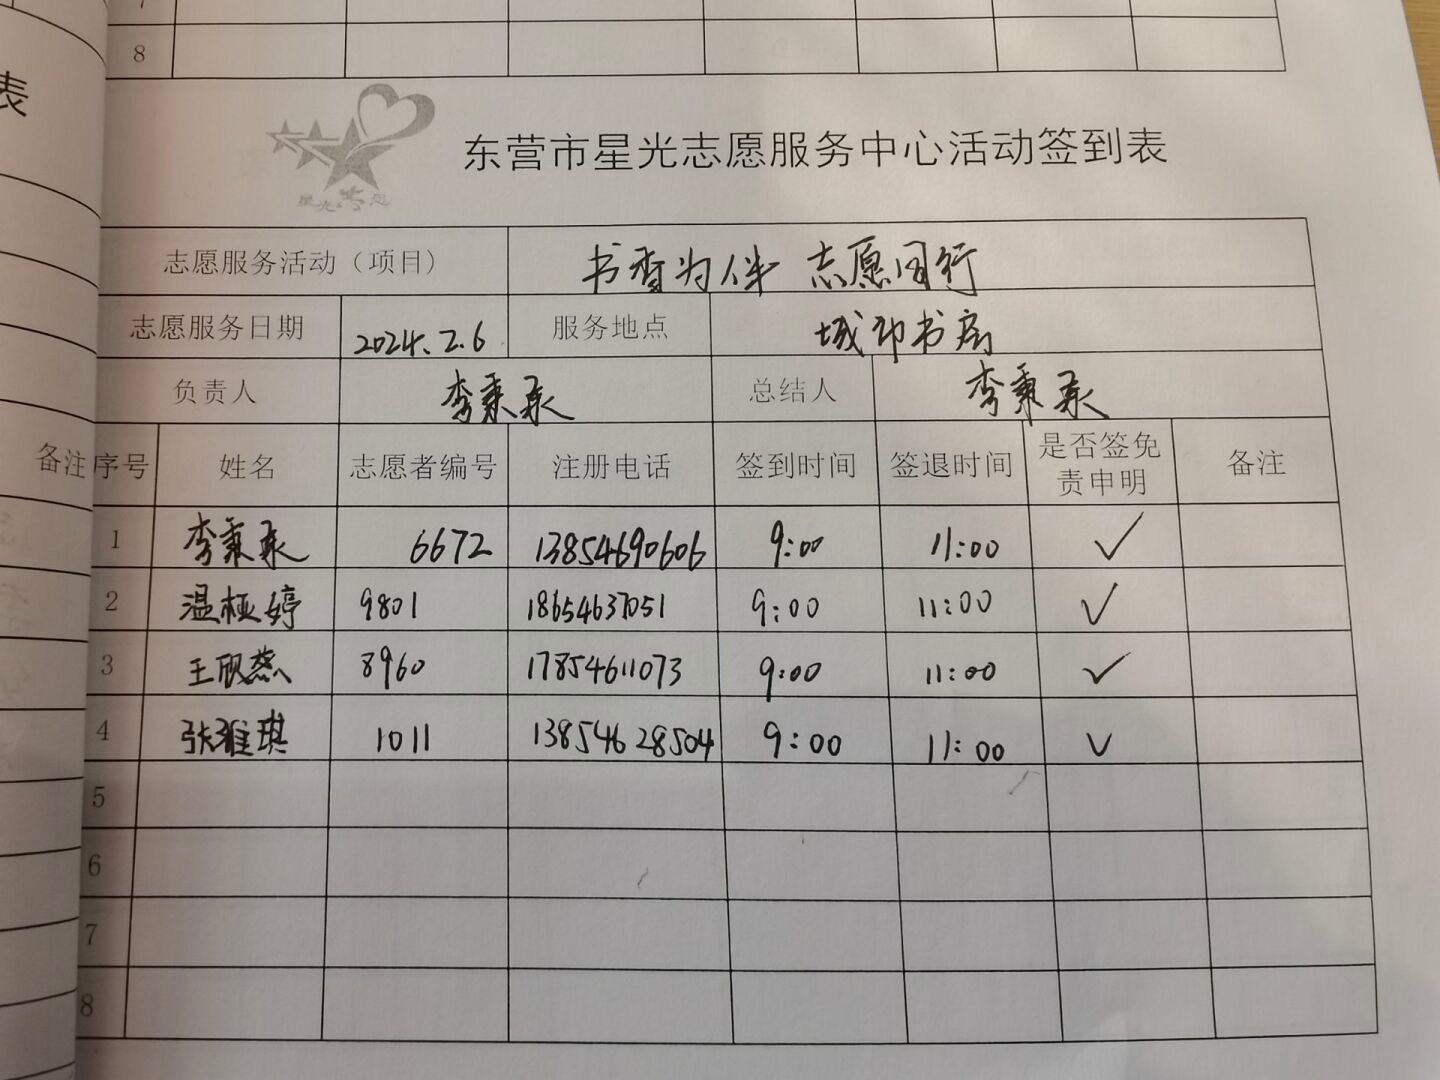 8
表
星光志愿
东营市星光志愿服务中心活动签到表
志愿服务活动（项目） 书香为伴 志愿同行
志愿服务日期 2024.2.6 服务地点 城市书房
负责人 李秉承 总结人 李秉承
备注 序号 姓名 志愿者编号 注册电话 签到时间 签退时间 是否签免责申明 备注
1 李秉承 6672 13854690606 9:00 11:00 ✓
2 温極婷 9801 18654637051 9:00 11:00 ✓
3 王欣燕 8960 17854611073 9:00 11:00 ✓
4 张雅琪 1011 13854628504 9:00 11:00 ✓
5
6
7
8